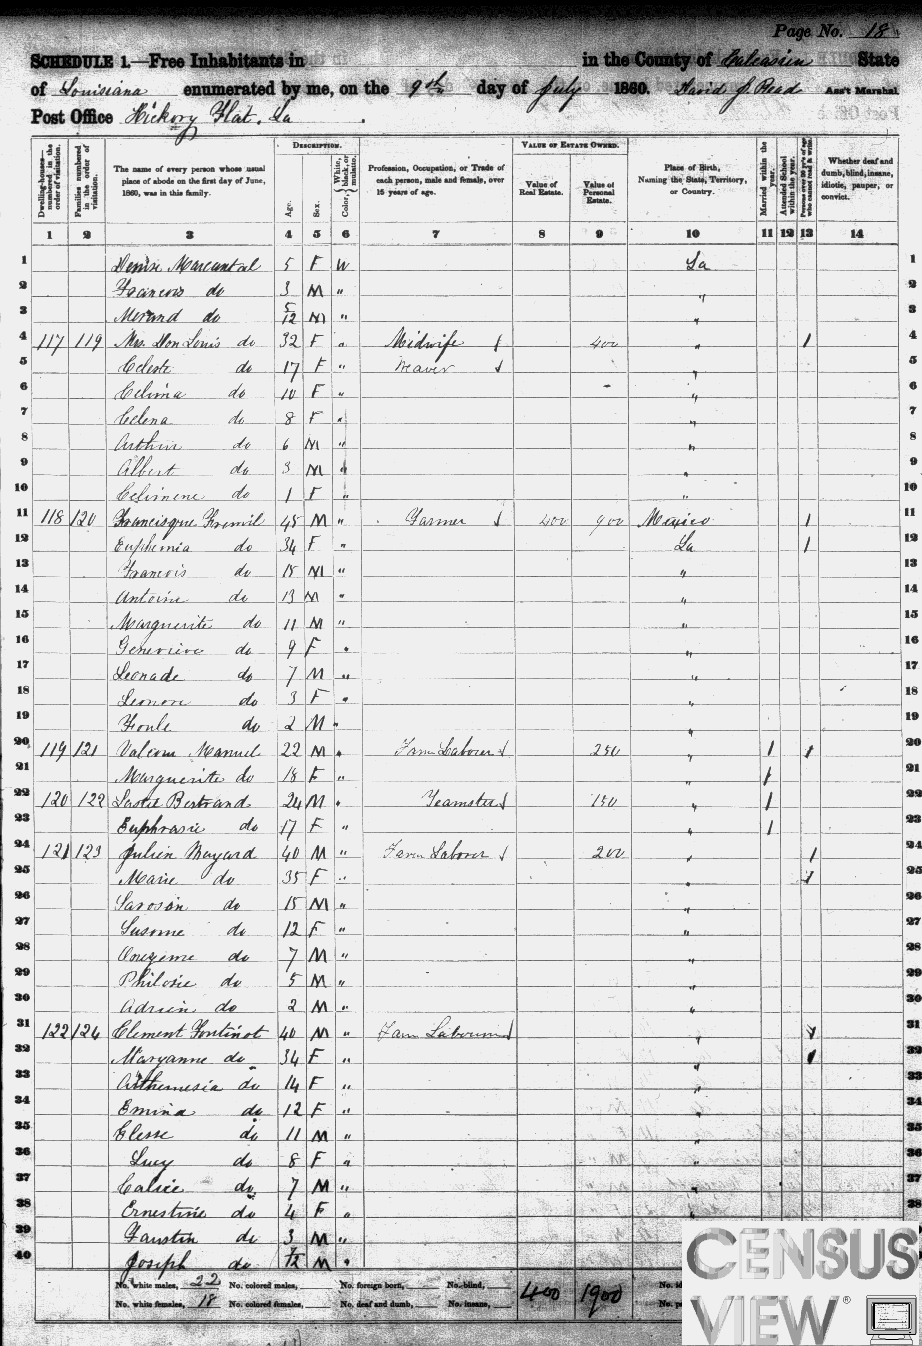 Page No. 18
SCHEDULE 1.—Free Inhabitants in in the County of Calcasieu State
of Louisiana enumerated by me, on the 9th day of July 1860. David J. Read Ass't Marshal
Post Office Hickory Flat, La.
DESCRIPTION. VALUE OF ESTATE OWNED.
Dwelling-houses—numbered in the order of visitation. Families numbered in the order of visitation. The name of every person whose usual place of abode on the first day of June, 1860, was in this family. Age. Sex. Color, White, black, or mulatto. Profession, Occupation, or Trade of each person, male and female, over 15 years of age. Value of Real Estate. Value of Personal Estate. Place of Birth, Naming the State, Territory, or Country. Married within the year. Attended School within the year. Persons over 20 years of age who cannot read & write. Whether deaf and dumb, blind, insane, idiotic, pauper, or convict.
1 2 3 4 5 6 7 8 9 10 11 12 13 14
1 Denise Marcantel 5 F W La 1
2 do 3 M " " 2
3 do 5/12 M " " 3
4 117 119 Mrs. Don Louis do 32 F " Midwife 400 " / 4
5 Celeste do 17 F " Weaver " 5
6 Celima do 10 F " " 6
7 Celena do 8 F " " 7
8 Arthur do 6 M " " 8
9 Albert do 3 M " " 9
10 Celimene do 1 F " " 10
11 118 120 Francisque 45 M " Farmer 400 900 Mexico / 11
12 Euphemia do 34 F " La / 12
13 Francois do 15 M " " 13
14 Antoine do 13 M " " 14
15 Marguerite do 11 M " " 15
16 Genevieve do 9 F " " 16
17 Leonade do 7 M " " 17
18 Leonore do 3 F " " 18
19 do 2 M " " 19
20 119 121 Valcour Manuel 22 M " Farm Labourer 250 " / / 20
21 Marguerite do 18 F " / 21
22 120 122 Bertrand 24 M " Teamster 150 " / 22
23 Euphrasie do 17 F " " / 23
24 121 123 Julien 40 M " Farm Laborer 200 " / 24
25 Marie do 35 F " " / 25
26 do 15 M " " 26
27 Susonne do 12 F " " 27
28 Onezime do 7 M " " 28
29 Philosie do 5 M " " 29
30 Adrien do 2 M " " 30
31 122 124 Clement Fontinot 40 M " Farm Labourer " / 31
32 Maryanne do 34 F " " / 32
33 Arthemesia do 14 F " " 33
34 Emina do 12 F " " 34
35 Elesse do 11 M " " 35
36 Lucy do 8 F " " 36
37 Calice do 7 M " " 37
38 Ernestine do 4 F " " 38
39 Faustin do 3 M "
40 Joseph do M "
No. white males, 22 No. colored males, No. foreign born, No. blind, 400 1900
No. white females, 18 No. colored females, No. deaf and dumb, No. insane,
CENSUS
VIEW®